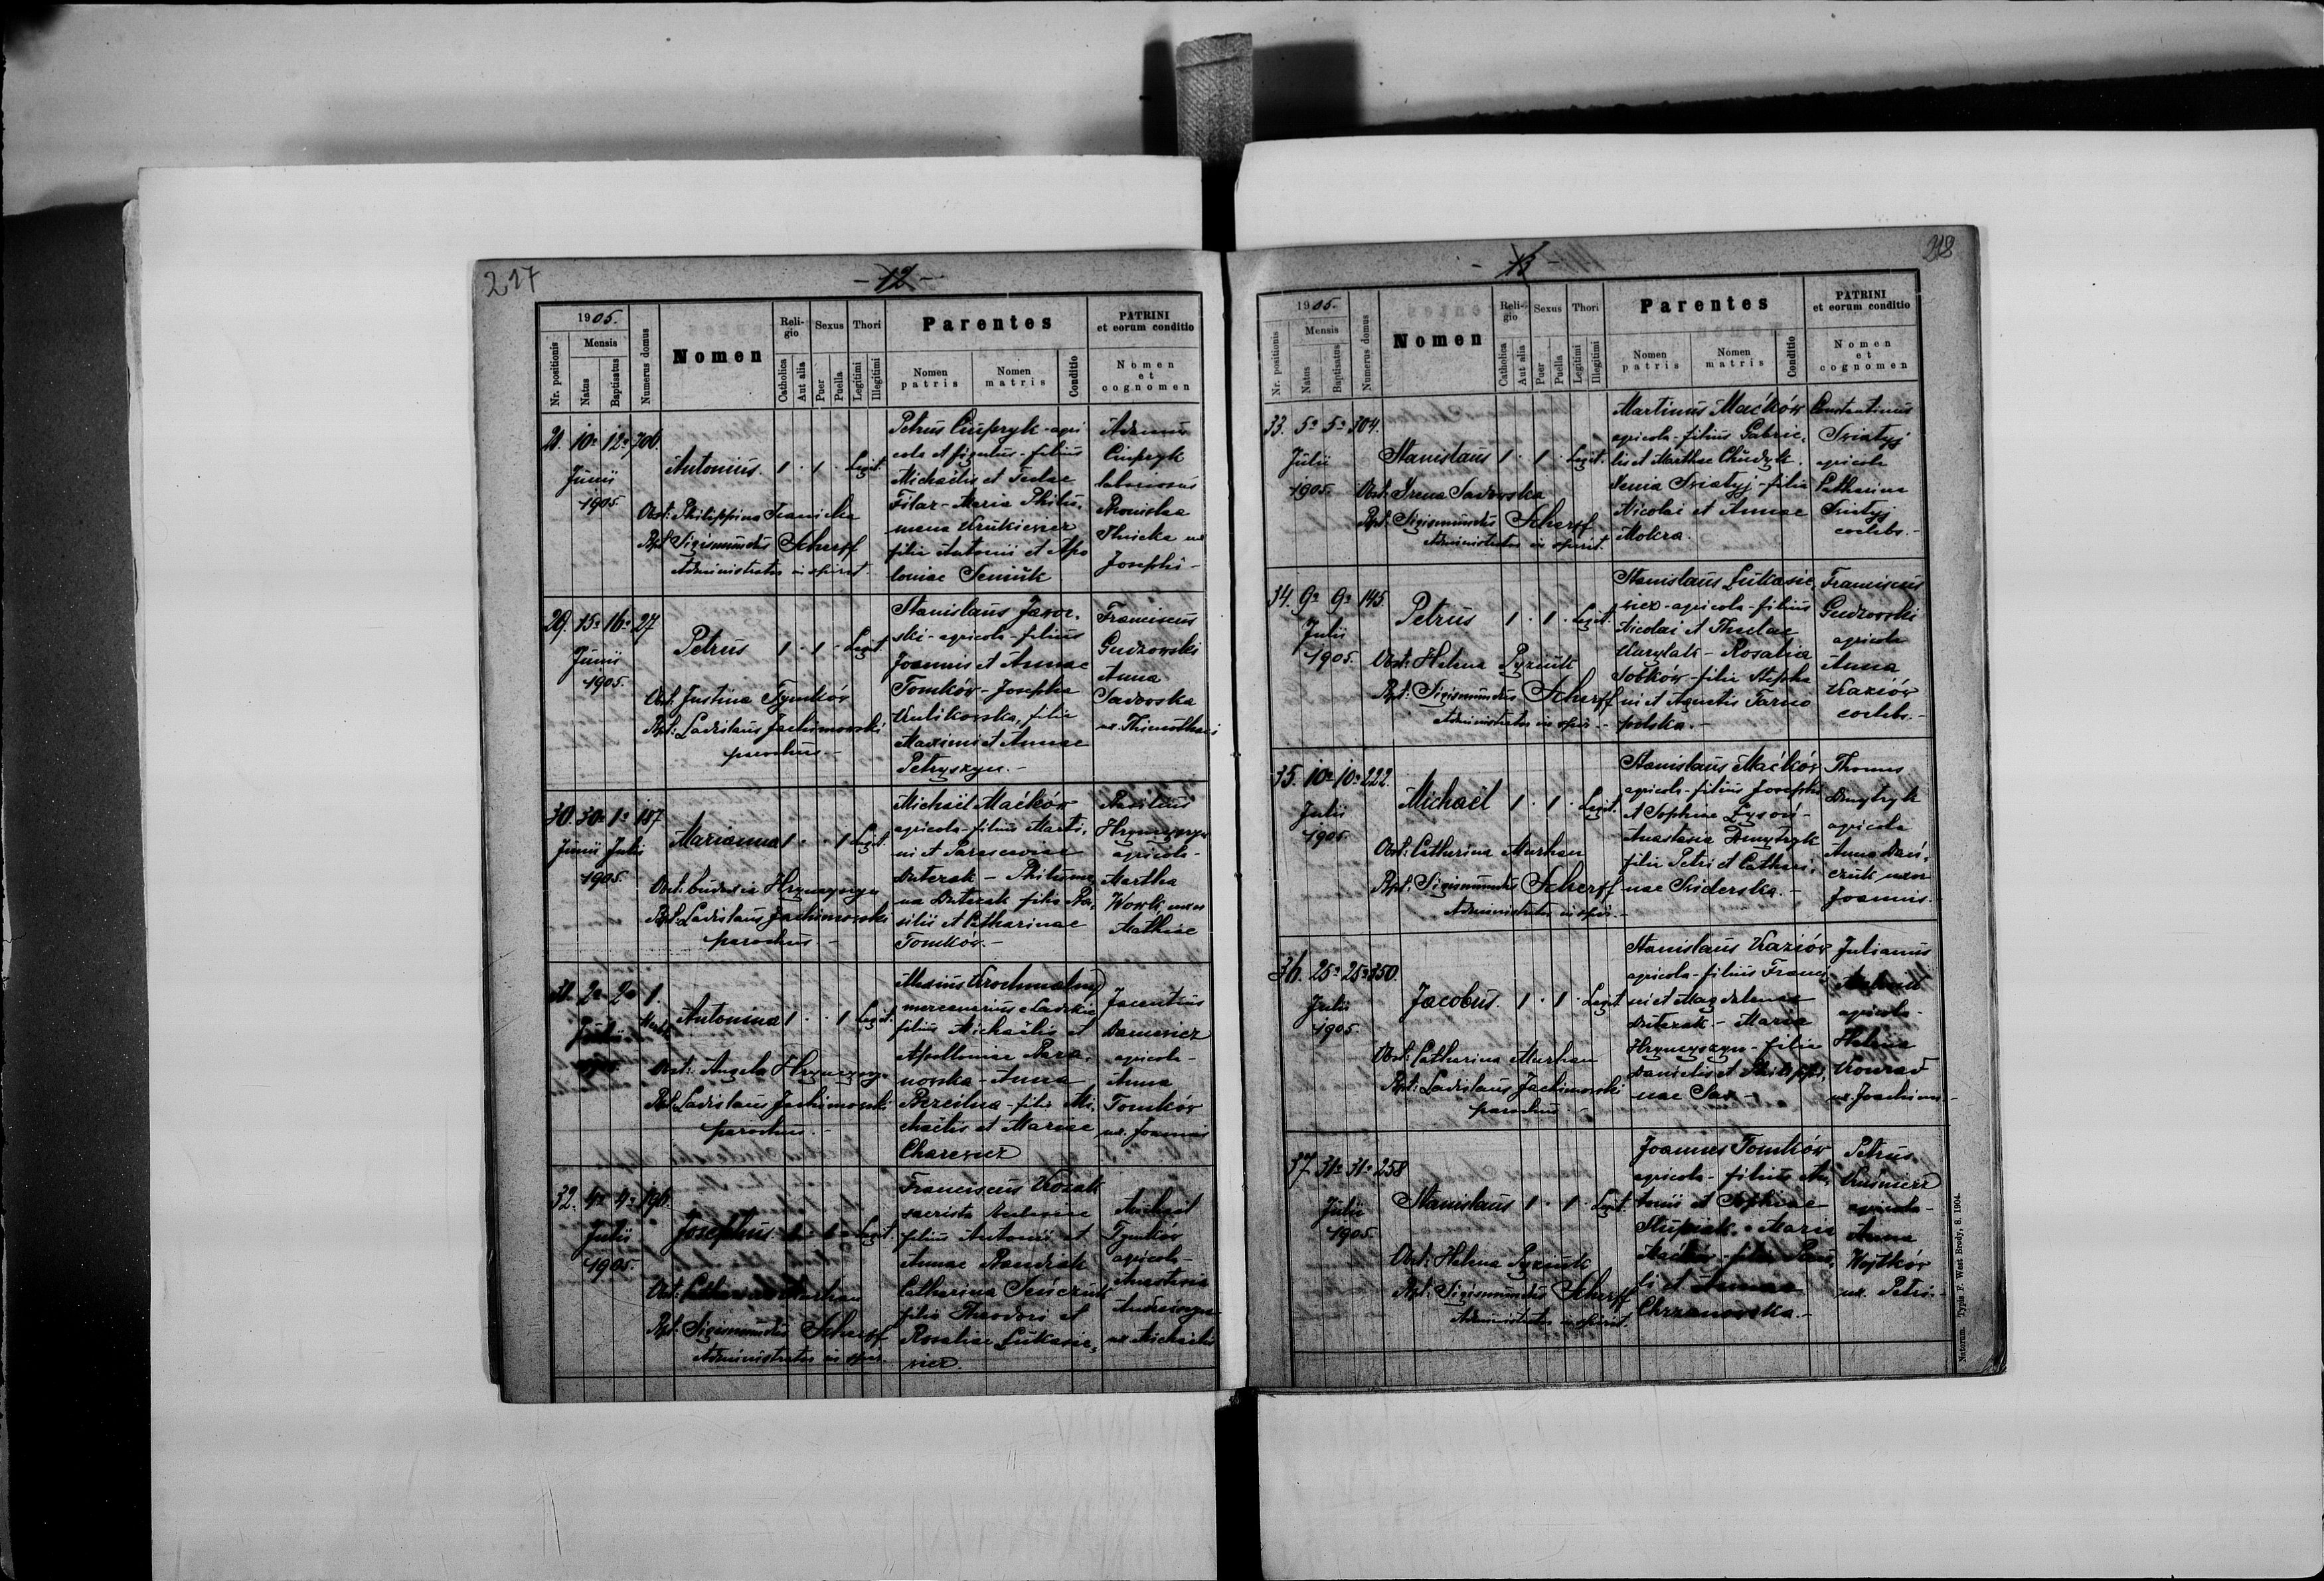 217
- 12 -
1905.
Nr. positionis
Mensis
Natus
Baptisatus
Numerus domus
Nomen
Religio
Catholica
Aut alia
Sexus
Puer
Puella
Thori
Legitimi
Illegitimi
Parentes
Nomen patris
Nomen matris
Conditio
PATRINI
et eorum conditio
Nomen
et
cognomen
10a 12a 706
Junii
1905
Antonius. 1 · 1 · Legit.
Obst: Philippina
Bpt. Sigismundus Scherff
Administrator in spirit.
Petrus Ciupryk - agri
cola et figulus - filius
Michaelis et Teclae
Filar - Maria Philo,
mena Krukiewicz
filia Antonii et Apo
loniae Seniuk
Adamus
Ciupryk
laboriosus
Josephi -
29. 15a 16a 27
Junii
1905
Petrus 1 · 1 · Legit.
Obst. Justina Tymków
Bpt: Ladislaus Jachimowski
parochus. -
Stanislaus Jawor,
ski - agricola - filius
Joannis et Annae
Tomków - Josepha
Kulikowska, filia
Maximi et Annae
Petryszyn. -
Franciscus
Gudzowski
Anna
Sadowska
ux. Thimothaei
30. 30a 1a 187
Junii Julii
1905.
Marianna 1 · · 1 Legit.
Obst: Eudoxia Hryncyszyn
Bpt. Ladislaus Jachimowski
parochus. -
Michaël Maćków
agricola - filius Marti,
ni et Parasceviae
Duterak - Philome
na Duterak filia Ba,
silii et Catharinae
Tomków. -
Basilius
Hryncyszyn
agricola -
Martha
Wowk uxor
Mathiae
31. 2a 2a 1.
Julii
Antonina 1 · · 1 Legit.
Obst: Angela Hryncyszyn
Bpt. Ladislaus Jachimowski
parochus. -
Krochmalny
mercenarius
filius Michaëlis et
Apolloniae Bara,
nowska - Anna
filia Mi,
chaëlis et Mariae
Charewicz
Jacentius
Danewicz
agricola -
Anna
Tomków
ux. Joannis
32. 4a 4a 196.
Julii
1905.
Josephus. 1 · 1 · Legit.
Obst: Catharina Murhan
Bpt. Sigismundus Scherff
Administrator in spir.
Franciscus Kozak
sacrista
filius Antonii et
Annae Bandrak
Catharina Seńczuk
filia Theodori et
Rosaliae Łukasie,
wicz.
Michael
Tymków
agricola
Anastasia
ux. Michaelis
218
- 13 -
1905.
Nr. positionis
Mensis
Natus
Baptisatus
Numerus domus
Nomen
Religio
Catholica
Aut alia
Sexus
Puer
Puella
Thori
Legitimi
Illegitimi
Parentes
Nomen patris
Nomen matris
Conditio
PATRINI
et eorum conditio
Nomen
et
cognomen
33. 5a 5a 304.
Julii
1905.
Stanislaus 1 · 1 · Legit.
Obst: Irena Sadowska
Bpt. Sigismundus Scherff
Administrator in spirit.
Martinus Maćków
agricola - filius Gabrie,
lis et Marthae Chudyk.
Xenia Swiatyj - filia
Nicolai et Annae
Mokra.
Constantinus
Swiatyj
agricola
Catharina
Swiatyj
coelebs. -
34. 9a 9a 145.
Julii
1905.
Petrus 1 · 1 · Legit.
Obst: Helena Pyziuk
Bpt: Sigismundus Scherff
Administrator in spir. -
Stanislaus Łukasie,
wicz - agricola - filius
Nicolai et Theclae
Rosalia
Sobków - filia Stepha
ni et Agnetis Tarno
polska. -
Franciscus
Gudzowski
agricola
Anna
Kaziów
coelebs. -
35. 10a 10a 222.
Julii
1905.
Michaël 1 · 1 · Legit.
Obst: Catharina Murhan
Bpt. Sigismundus Scherff
Administrator in spir. -
Stanislaus Maćków
agricola - filius Josephi
et Sophiae Łysoń -
Anastasia Dmytryk
filia Petri et Cathari,
nae Swiderska. -
Thomas
Dmytryk
agricola
Anna
uxor
Joannis. -
36. 25a 25a 350.
Julii
1905.
Jacobus. 1 · 1 · Legit
Obst: Catharina Murhan
Bpt: Ladislaus Jachimowski
parochus -
Stanislaus Kaziów
agricola - filius
et Magdalenae
Duterak. - Maria
Hryncyszyn - filia
Danielis et Philippi,
nae Sax -
Julianus
agricola -
Helena
Konrad
ux. Joachimi -
37. 31a 31a 258
Julii
1905.
Stanislaus 1 · 1 · Legit.
Obst: Helena Pyziuk
Bpt. Sigismundus Scherff
Administrator in spirit.
Joannes Tomków
agricola - filius An,
tonii et Sophiae
Słupiak. - Maria
Maćków - filia Pau,
li et Annae
Chrzanowska. -
Petrus
Kuśnierz
agricola -
Anna
Wojtków
ux. Petri. -
Natorum. Typis F. West Brody, 8. 1904.